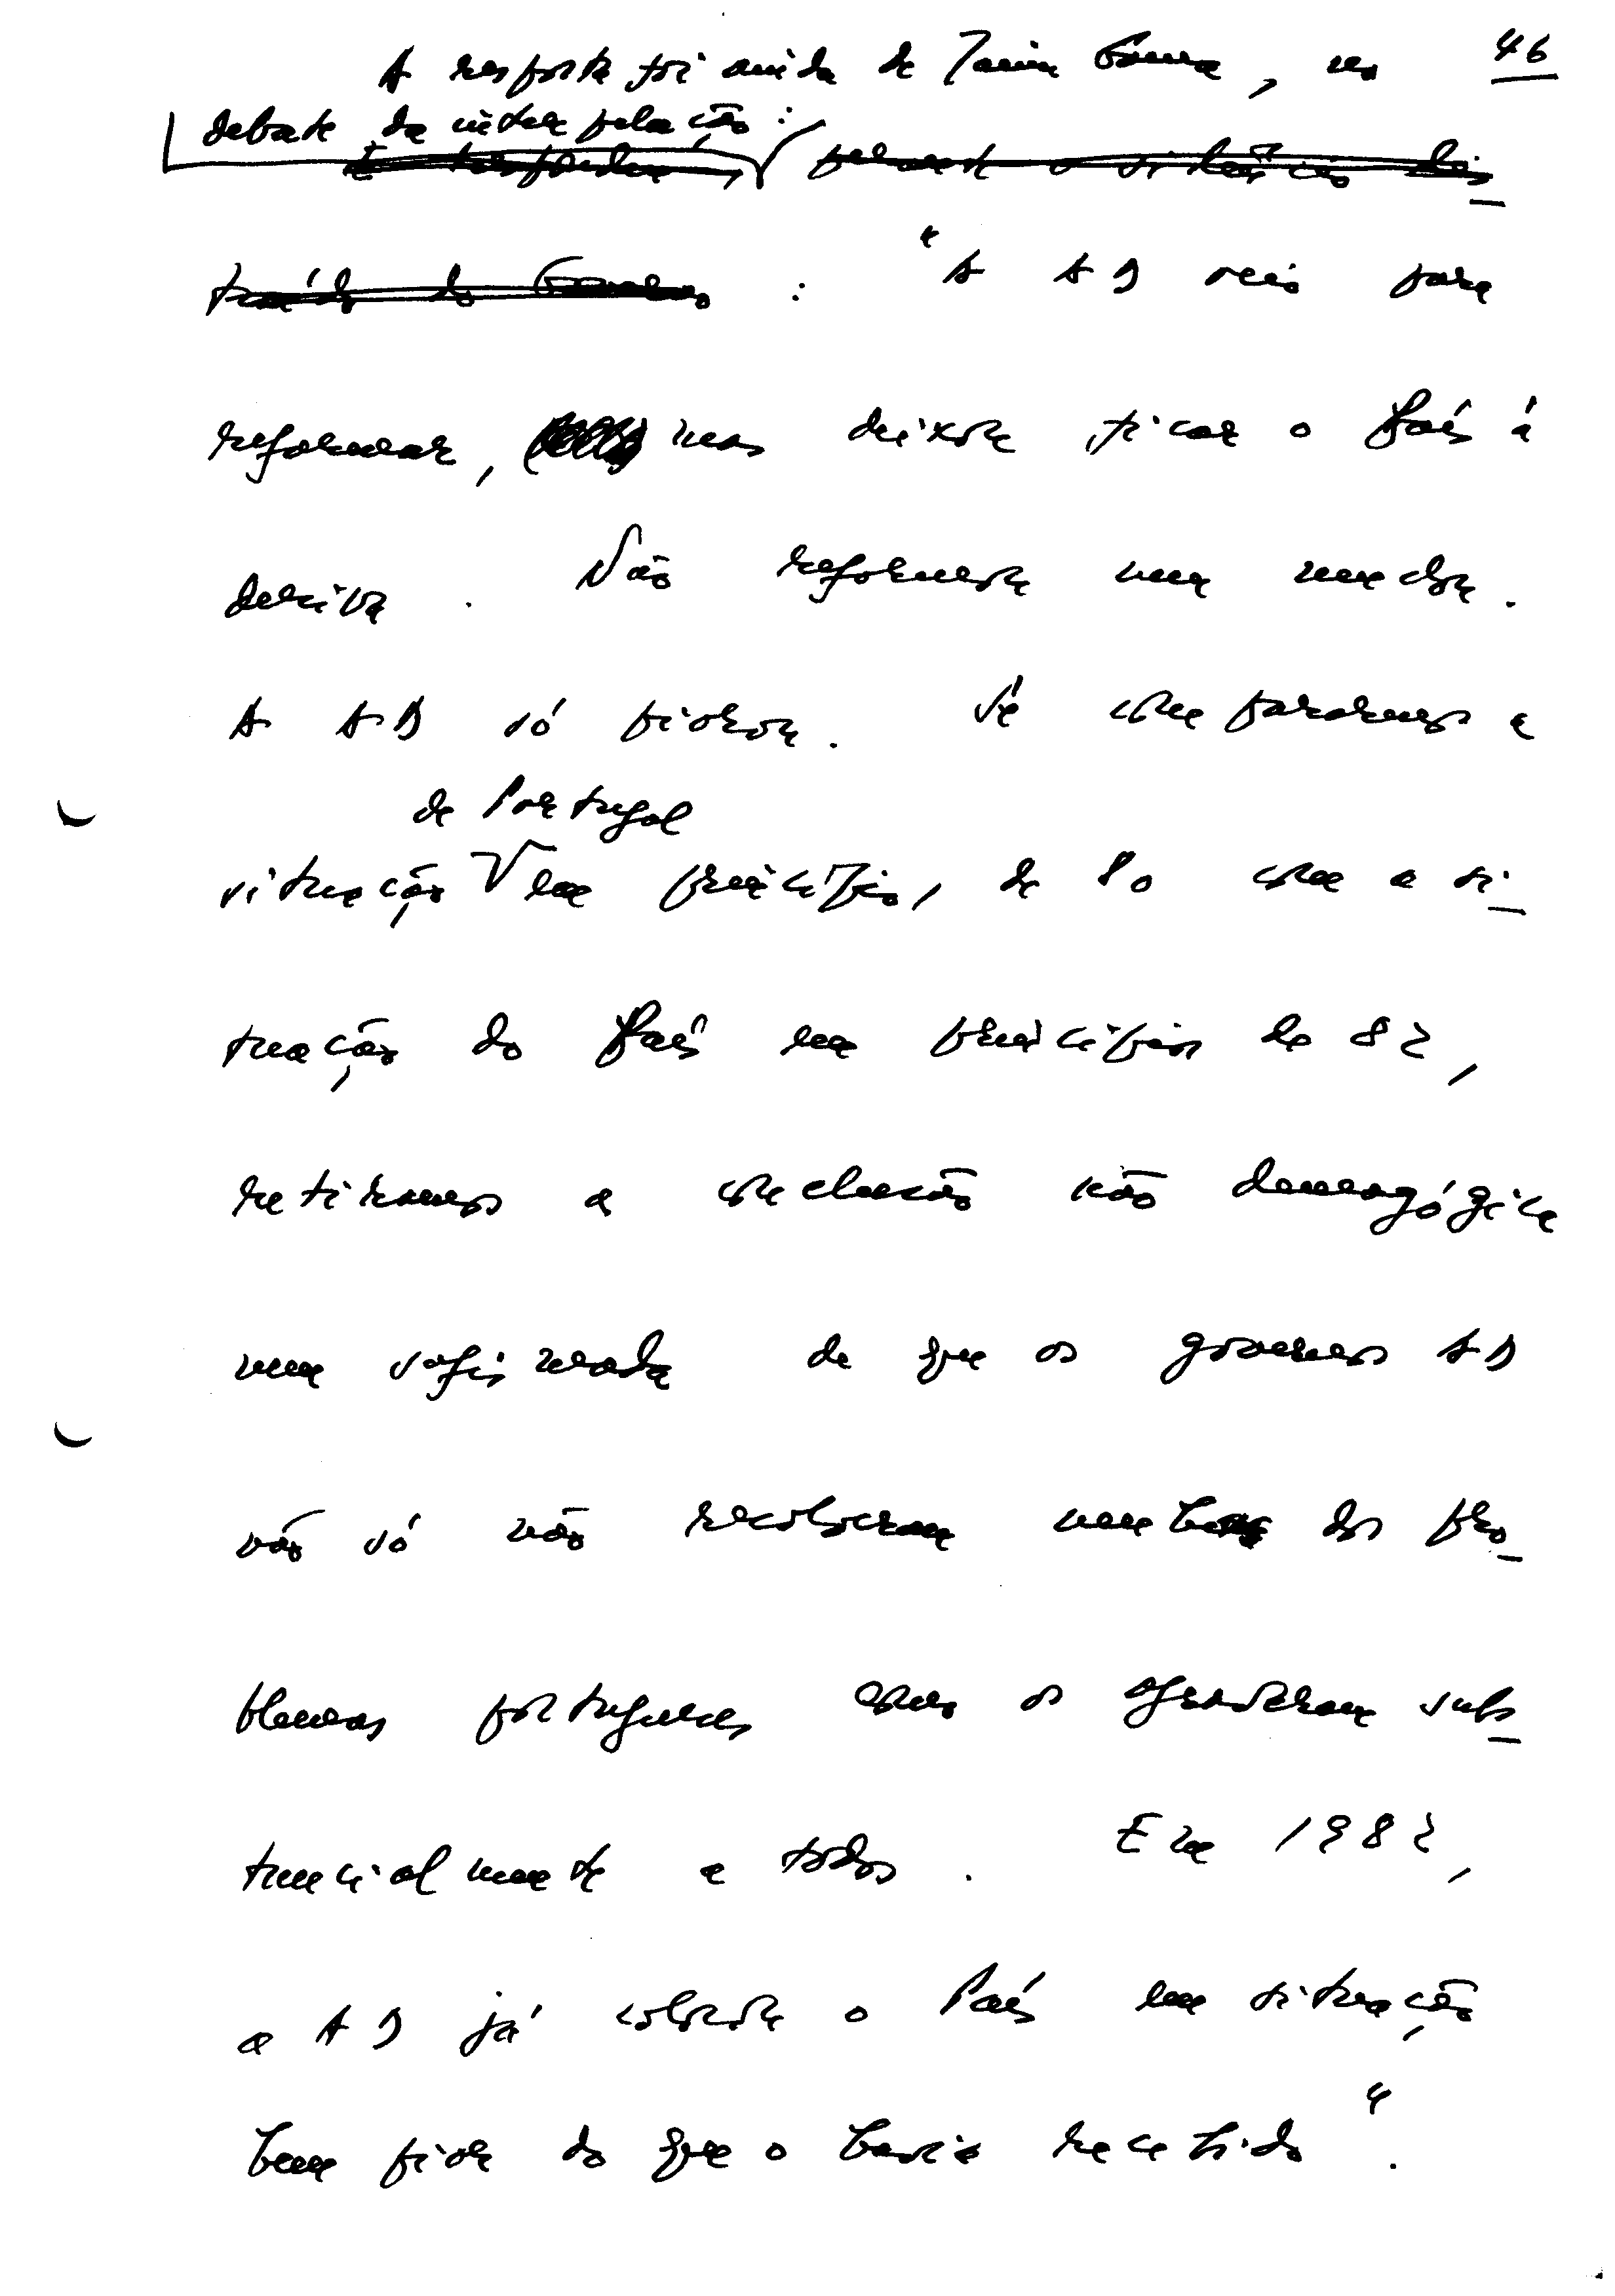 46
A resposta foi ainda de Jaime Gama, no
debate da interpelação:
: "A AD veio para
reformar, mas deixou ficar o País à
deriva. Não reformou nem mudou.
A AD só piorou. Se compararmos a
de Portugal
situação em princípios de 80 com a si-
tuação do País em princípios de 82,
retiramos a conclusão não demagógica
nem sofismada de que os governos AD
não só não resolveram nenhum dos pro-
blemas portugueses como os agravaram subs-
tancialmente a todos. Em 1982,
a AD já colocou o País em situação
bem pior do que o havia recebido".